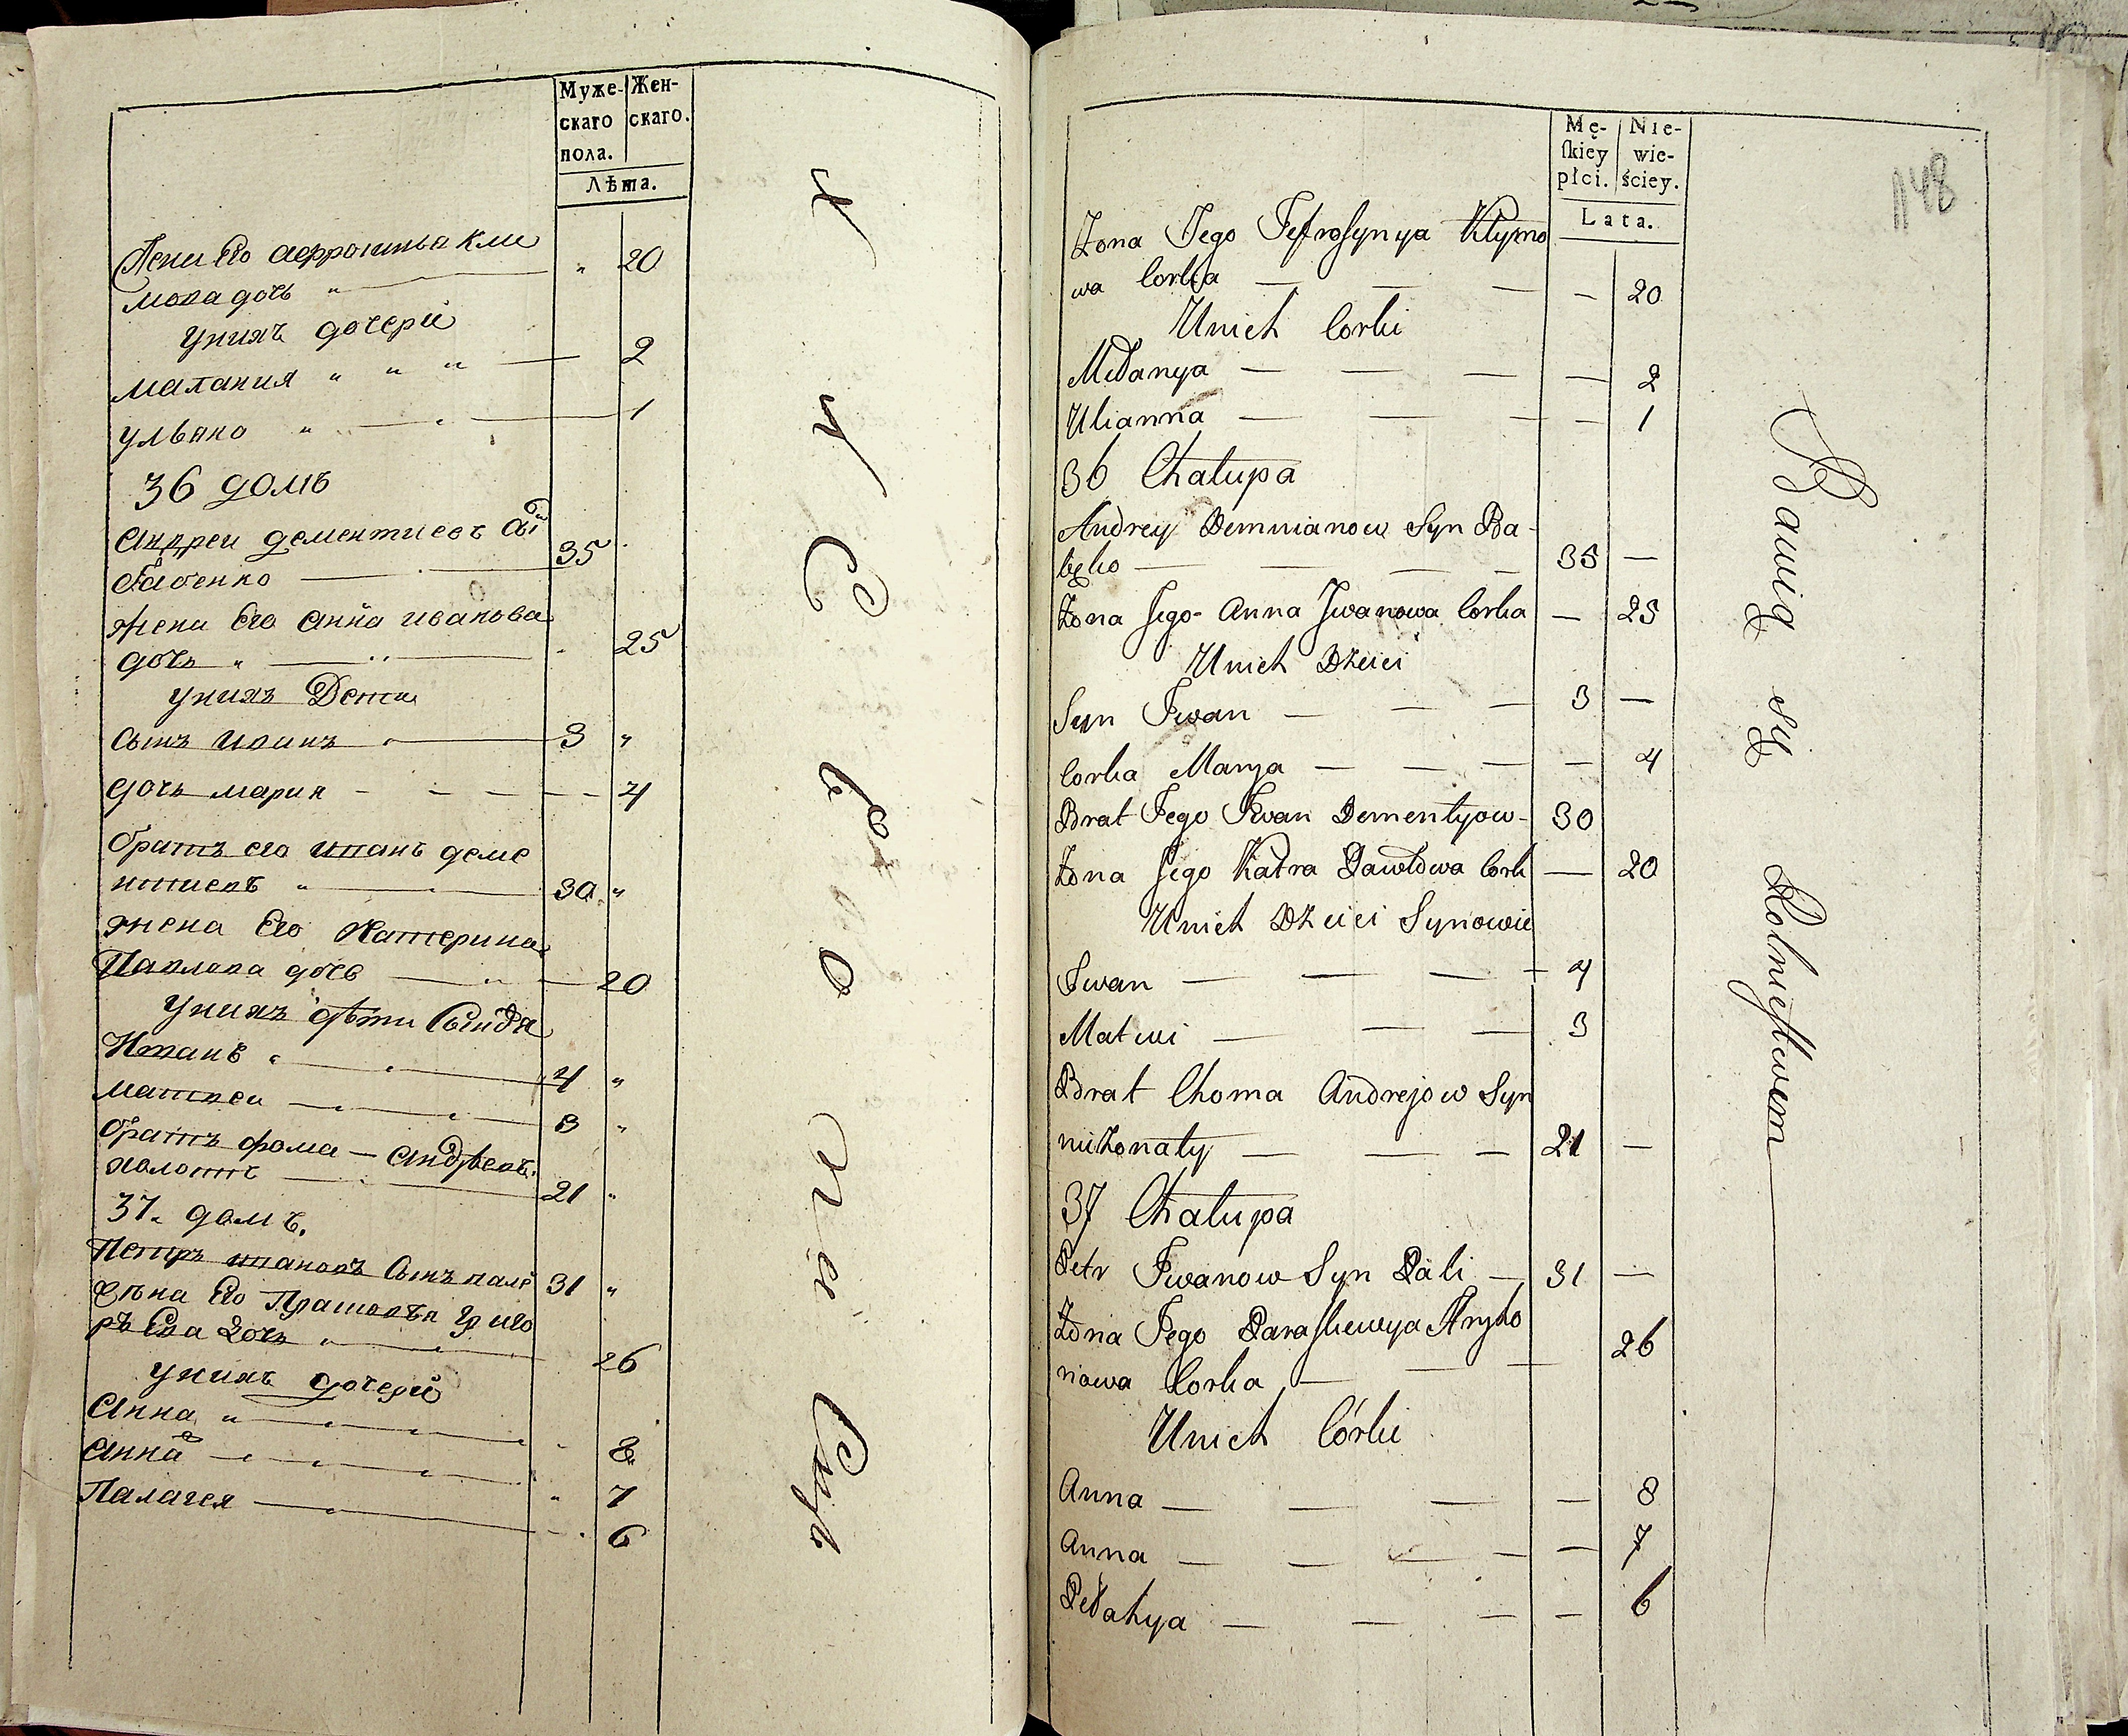 Муже- Жен-
скаго скаго.
пола.
Лѣта.
Жена Его Афросинья Кли
мова дочь " — " 20
У нихъ дочери
Малания " " " — 2
Ульяна " — 1
36 домъ
Андреи дементиевъ сы
Бабенко — 35
Жена Его Анна иванова
дочь " — 25
У нихъ Дети
Сынъ иванъ — 3 "
дочь мария - - - - - 4
братъ его иванъ деме
нтиевъ " — 30 "
жена Его Катерина
Павлова дочь — 20
У нихъ дѣти
Иванъ — 4 "
матвеи — 3 "
братъ фома — Андреевъ
холостъ — 21 "
37. домъ.
Петръ ивановъ Сынъ пали 31 "
Жена Его Прасковья Григо
рьева дочь " — 26
У нихъ дочерей
Анна " — 8
Анна — " 7
Палагея — 6
148
Mę- Nie-
skiey wie-
płci. ściey.
Lata.
Żona Jego Jefrosynya Klymo
wa Corka — — — — 20
U nich Corki
Mełanya — — — — 2
Ulianna — — — — 1
36 Chałupa
Andrey Demnianow Syn Ba-
bęko — — — — 35 —
Żona Jego - Anna Jwanowa Corka — 25
U nich Dzieci
Syn Jwan — — — 3 —
Corka Marya — — — — 4
Brat Jego Jwan Dementyow- 30
Żona Jego Katra Pawłowa Cork — 20
U nich Dzieci Synowie
Jwan — — — 4
Matwi — — — 3
Brat Choma Andrejow Syn
nieżonaty — — — 21 —
37 Chałupa
Petr Jwanow Syn Pali — 31 —
Żona Jego Paraskewya Hryho
26
nowa Corka — — —
U nich Córki
Anna — — — — 8
Anna — — — — 7
Pełahya — — — — 6
Bawią się Rolnictwem